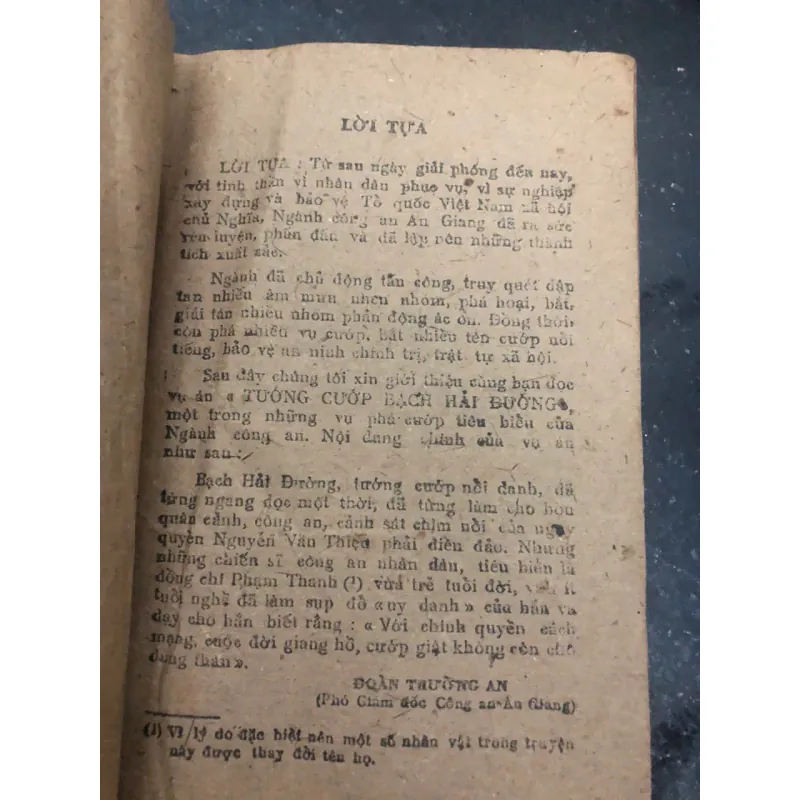 LỜI TỰA
LỜI TỰA : Từ sau ngày giải phóng đến nay,
với tinh thần vì nhân dân phục vụ, vì sự nghiệp
xây dựng và bảo vệ Tổ quốc Việt Nam xã hội
chủ Nghĩa, Ngành công an An Giang đã ra sức
rèn luyện, phấn đấu và đã lập nên những thành
tích xuất sắc.
Ngành đã chủ động tấn công, truy quét đập
tan nhiều âm mưu nhen nhóm, phá hoại, bắt,
giải tán nhiều nhóm phản động ác ôn. Đồng thời,
còn phá nhiều vụ cướp, bắt nhiều tên cướp nổi
tiếng, bảo vệ an ninh chính trị, trật tự xã hội.
Sau đây chúng tôi xin giới thiệu cùng bạn đọc
vụ án « TƯỚNG CƯỚP BẠCH HẢI ĐƯỜNG»,
một trong những vụ phá cướp tiêu biểu của
Ngành công an. Nội dung chính của vụ án
như sau :
Bạch Hải Đường, tướng cướp nổi danh, đã
từng ngang dọc một thời, đã từng làm cho bọn
quân cảnh, công an, cảnh sát chìm nổi của ngụy
quyền Nguyễn Văn Thiệu phải điên đảo. Nhưng
những chiến sĩ công an nhân dân, tiêu biểu là
đồng chí Phạm Thanh (1) vừa trẻ tuổi đời, vừa ít
tuổi nghề đã làm sụp đổ «uy danh» của hắn và
dạy cho hắn biết rằng : «Với chính quyền cách
mạng, cuộc đời giang hồ, cướp giật không còn chỗ
dung thân».
ĐOÀN TRƯỜNG AN
(Phó Giám đốc Công an An Giang)
(1) Vì lý do đặc biệt nên một số nhân vật trong truyện
này được thay đổi tên họ.